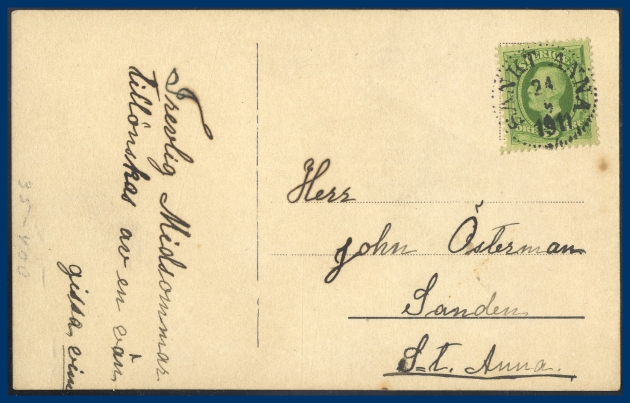 Trevlig Midsommar
tillönskas av en vän,
gissa vem
Herr
John Österman
Sanden
S-t. Anna.
SANKT ANNA
24
1911
35-400